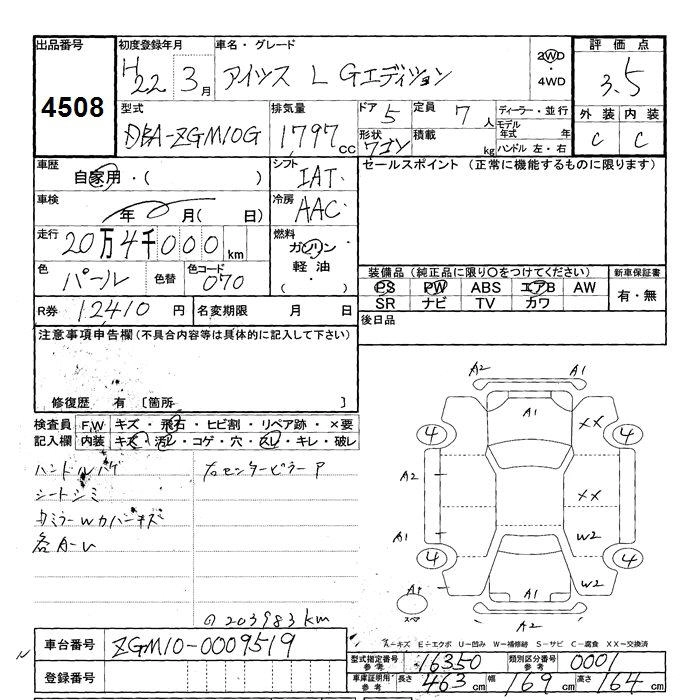 出品番号 初度登録年月 車名・グレード 評価点
4508
H22 3月 アイシス L Gエディション 2WD・4WD 3.5
型式 排気量 ドア 5 定員 7人 ディーラー・並行 外装 内装
DBA-ZGM10G 1797cc 形状 ワゴン 積載 kg モデル年式 年 C C
ハンドル 左・右
車歴 自家用・( ) シフト IAT セールスポイント (正常に機能するものに限ります)
車検 年 月( 日) 冷房 AAC
走行 20万4千000km 燃料 ガソリン 軽油 ( ・ )
色 パール 色替 色コード 070
装備品 (純正品に限り○をつけてください) 新車保証書
PS PW ABS エアB AW 有・無
SR ナビ TV カワ
R券 12410円 名変期限 月 日 後日品
注意事項申告欄 (不具合内容等は具体的に記入して下さい)
修復歴 有 [箇所 ]
検査員 F.W キズ・飛石・ヒビ割・リペア跡・×要
記入欄 内装 キズ・汚レ・コゲ・穴・スレ・キレ・破レ
ハンドルハゲ 右センターピラーP
シートシミ
カバーキズ
各A-U
203983km
A2 A1
A1 XX
4 4
A2 XX
A1 W2
4 4
W2
A1 A1
スペア
A1 A2
A-キズ E-エクボ U-凹み W-補修跡 S-サビ C-腐食 XX-交換済
車台番号 ZGM10-0009519
型式指定番号 参考 16350 類別区分番号 参考 0001
登録番号
車庫証明用 参考 長さ 463cm 幅 169cm 高さ 164cm